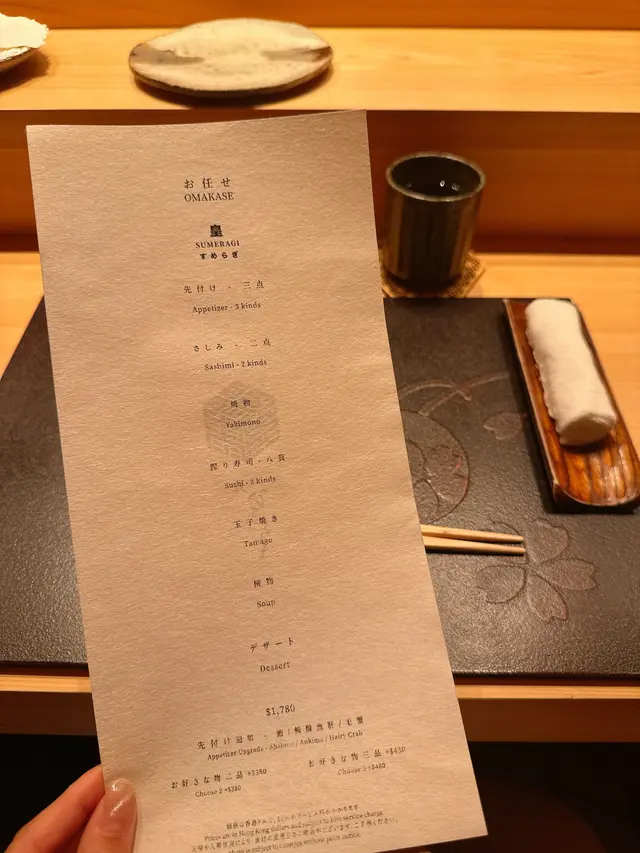 お任せ
OMAKASE
皇
SUMERAGI
すめらぎ
先付け - 三点
Appetizer - 3 kinds
さしみ - 二点
Sashimi - 2 kinds
焼物
Yakimono
握り寿司 - 八貫
Sushi - 8 kinds
玉子焼き
Tamago
椀物
Soup
デザート
Dessert
$1,780
先付け追加 - 鮑 / 鮟鱇魚肝 / 毛蟹
Appetizer Upgrade - Abalone / Ankimo / Hairy Crab
お好きな物二品 +$380
お好きな物三品 +$430
Choose 2 +$380
Choose 3 +$430
Prices are in Hong Kong dollars and subject to 10% service charge
Menu is subject to changes without prior notice.